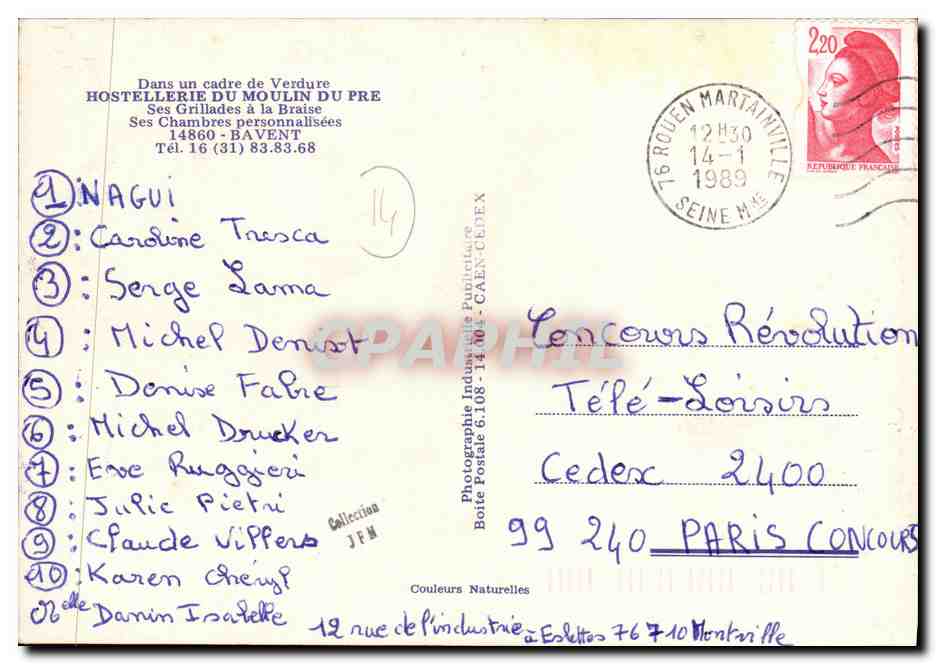 Dans un cadre de Verdure
HOSTELLERIE DU MOULIN DU PRE
Ses Grillades à la Braise
Ses Chambres personnalisées
14860 - BAVENT
Tél. 16 (31) 83.83.68
14
① NAGUI
②: Caroline Tresca
③: Serge Lama
④: Michel Denisot
⑤: Denise Fabre
⑥: Michel Drucker
⑦: Eve Ruggieri
⑧: Julie Pietri
⑨: Claude Villers
⑩: Karen Chéryl
Melle Danin Isabelle
12 rue de l'industrie à Eslettes 76710 Montville
Collection
JFM
Photographie Industrielle Publicitaire
Boite Postale 6.108 - 14.004 - CAEN-CEDEX
Couleurs Naturelles
CPAPHIL
2,20
POSTES
REPUBLIQUE FRANÇAISE
76 ROUEN MARTAINVILLE
12H30
14-1
1989
SEINE Mme
Concours Révolution
Télé-Loisirs
Cedex 2400
99 240 PARIS CONCOURS